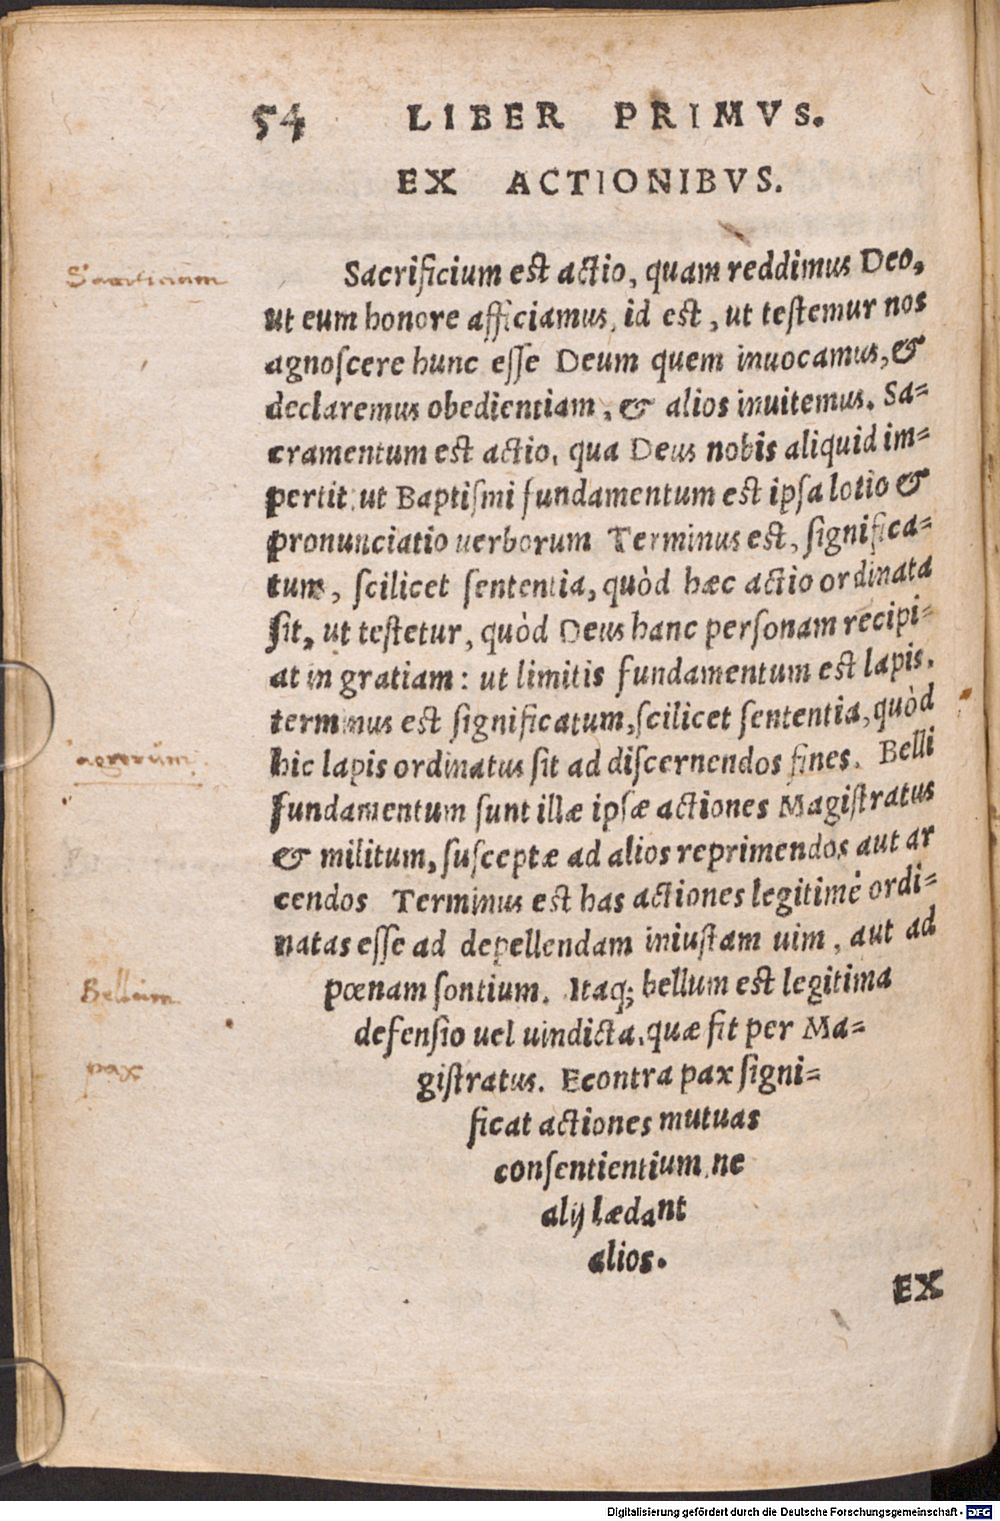 54 LIBER PRIMVS.
EX ACTIONIBVS.
Sacrificium
Sacrificium est actio, quam reddimus Deo,
ut eum honore afficiamus, id est, ut testemur nos
agnoſcere hunc eſſe Deum quem inuocamus, &
declaremus obedientiam, & alios inuitemus. Sa=
cramentum est actio, qua Deus nobis aliquid im=
pertit, ut Baptiſmi fundamentum est ipſa lotio &
pronunciatio uerborum Terminus est, ſignifica=
tum, ſcilicet ſententia, quòd hæc actio ordinata
ſit, ut teſtetur, quòd Deus hanc perſonam recipi=
at in gratiam: ut limitis fundamentum est lapis.
terminus est ſignificatum, ſcilicet ſententia, quòd
hic lapis ordinatus ſit ad diſcernendos fines. Belli
fundamentum ſunt illæ ipſæ actiones Magiſtratus
& militum, ſuſceptæ ad alios reprimendos aut ar
cendos Terminus est has actiones legitimè ordi=
natas eſſe ad depellendam iniuſtam uim, aut ad
Bellum
pœnam ſontium. Itaq; bellum est legitima
defenſio uel uindicta, quæ fit per Ma=
pax
giſtratus. Econtra pax ſigni=
ficat actiones mutuas
conſentientium, ne
alij lædant
alios.
EX
Digitalisierung gefördert durch die Deutsche Forschungsgemeinschaft - DFG